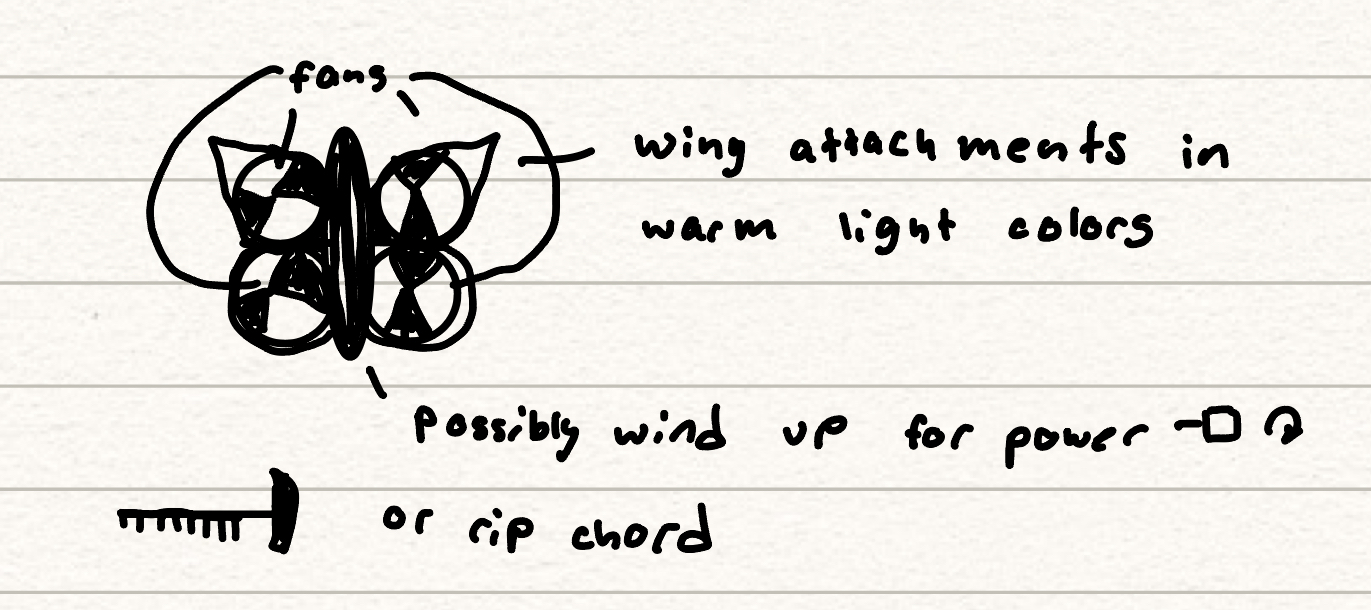 fans
wing attachments in
warm light colors
possibly wind up for power
or rip chord